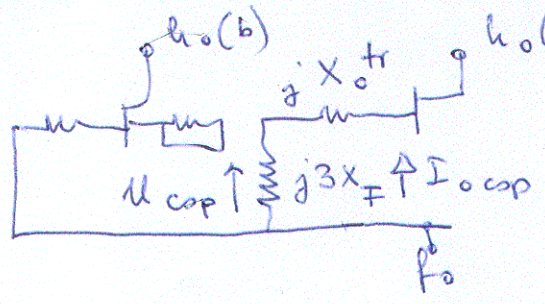 h₀(b)
h₀(
jX₀ᵗʳ
U cop
j3x_I
I₀ cop
f₀